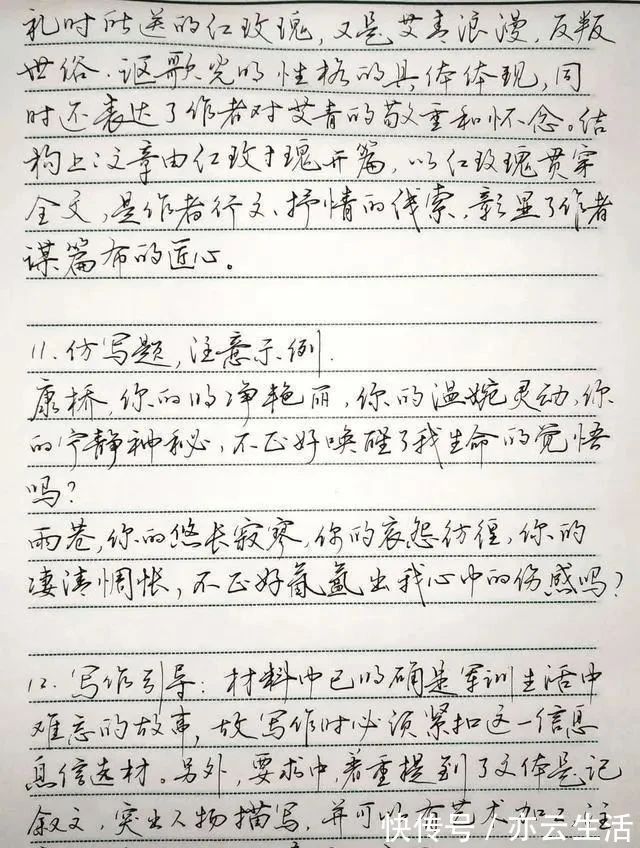 礼时所送的红玫瑰,又是艾青浪漫,反叛
世俗、讴歌光明性格的具体体现,同
时还表达了作者对艾青的敬重和怀念。结
构上:文章由红玫瑰开篇,以红玫瑰贯穿
全文,是作者行文、抒情的线索,彰显了作者
谋篇布的匠心。
11.仿写题,注意示例.
康桥,你的明净艳丽,你的温婉灵动,你
的宁静神秘,不正好唤醒了我生命的觉悟
吗?
雨巷,你的悠长寂寥,你的哀怨彷徨,你的
凄清惆怅,不正好氤氲出我心中的伤感吗?
12.写作引导:材料中已明确是军训生活中
难忘的故事,故写作时必须紧扣这一信息
息信选材。另外,要求中,着重提到了文体是记
叙文,突出人物描写,并可以有艺术加工注
快传号/亦云生活